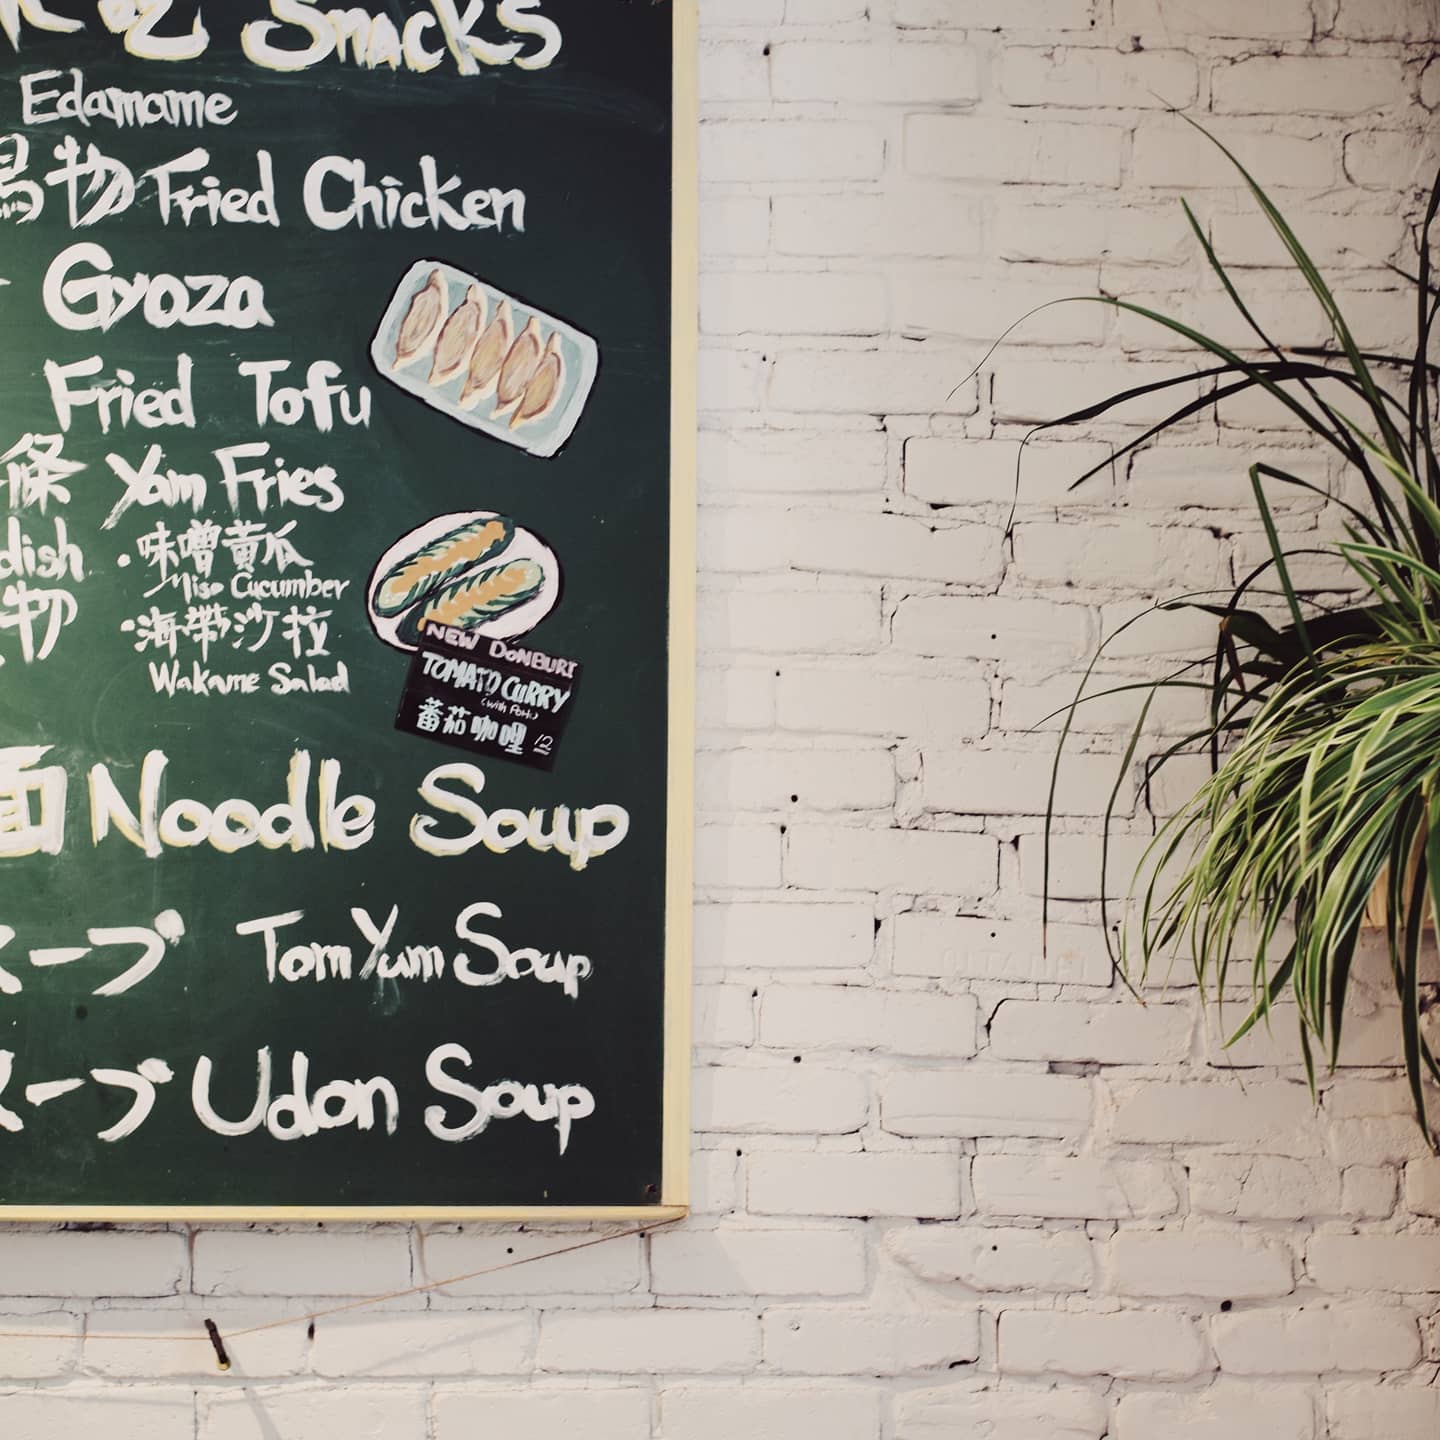 吃 Snacks
Edamame
物 Fried Chicken
Gyoza
Fried Tofu
條 Yam Fries
dish
物
・味噌黄瓜
Miso Cucumber
・海帶沙拉
Wakame Salad
NEW DONBURI
TOMATO CURRY
(with Tofu)
蕃茄咖哩 12
面 Noodle Soup
スープ Tom Yum Soup
スープ Udon Soup